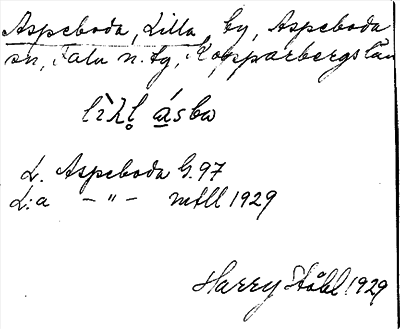 Aspeboda, Lilla, by, Aspeboda
sn, Falu n. tg, Kopparbergs län
ásbo
L. Aspeboda G. 97
L:a — " — mtll 1929
Harry Ståhl 1929